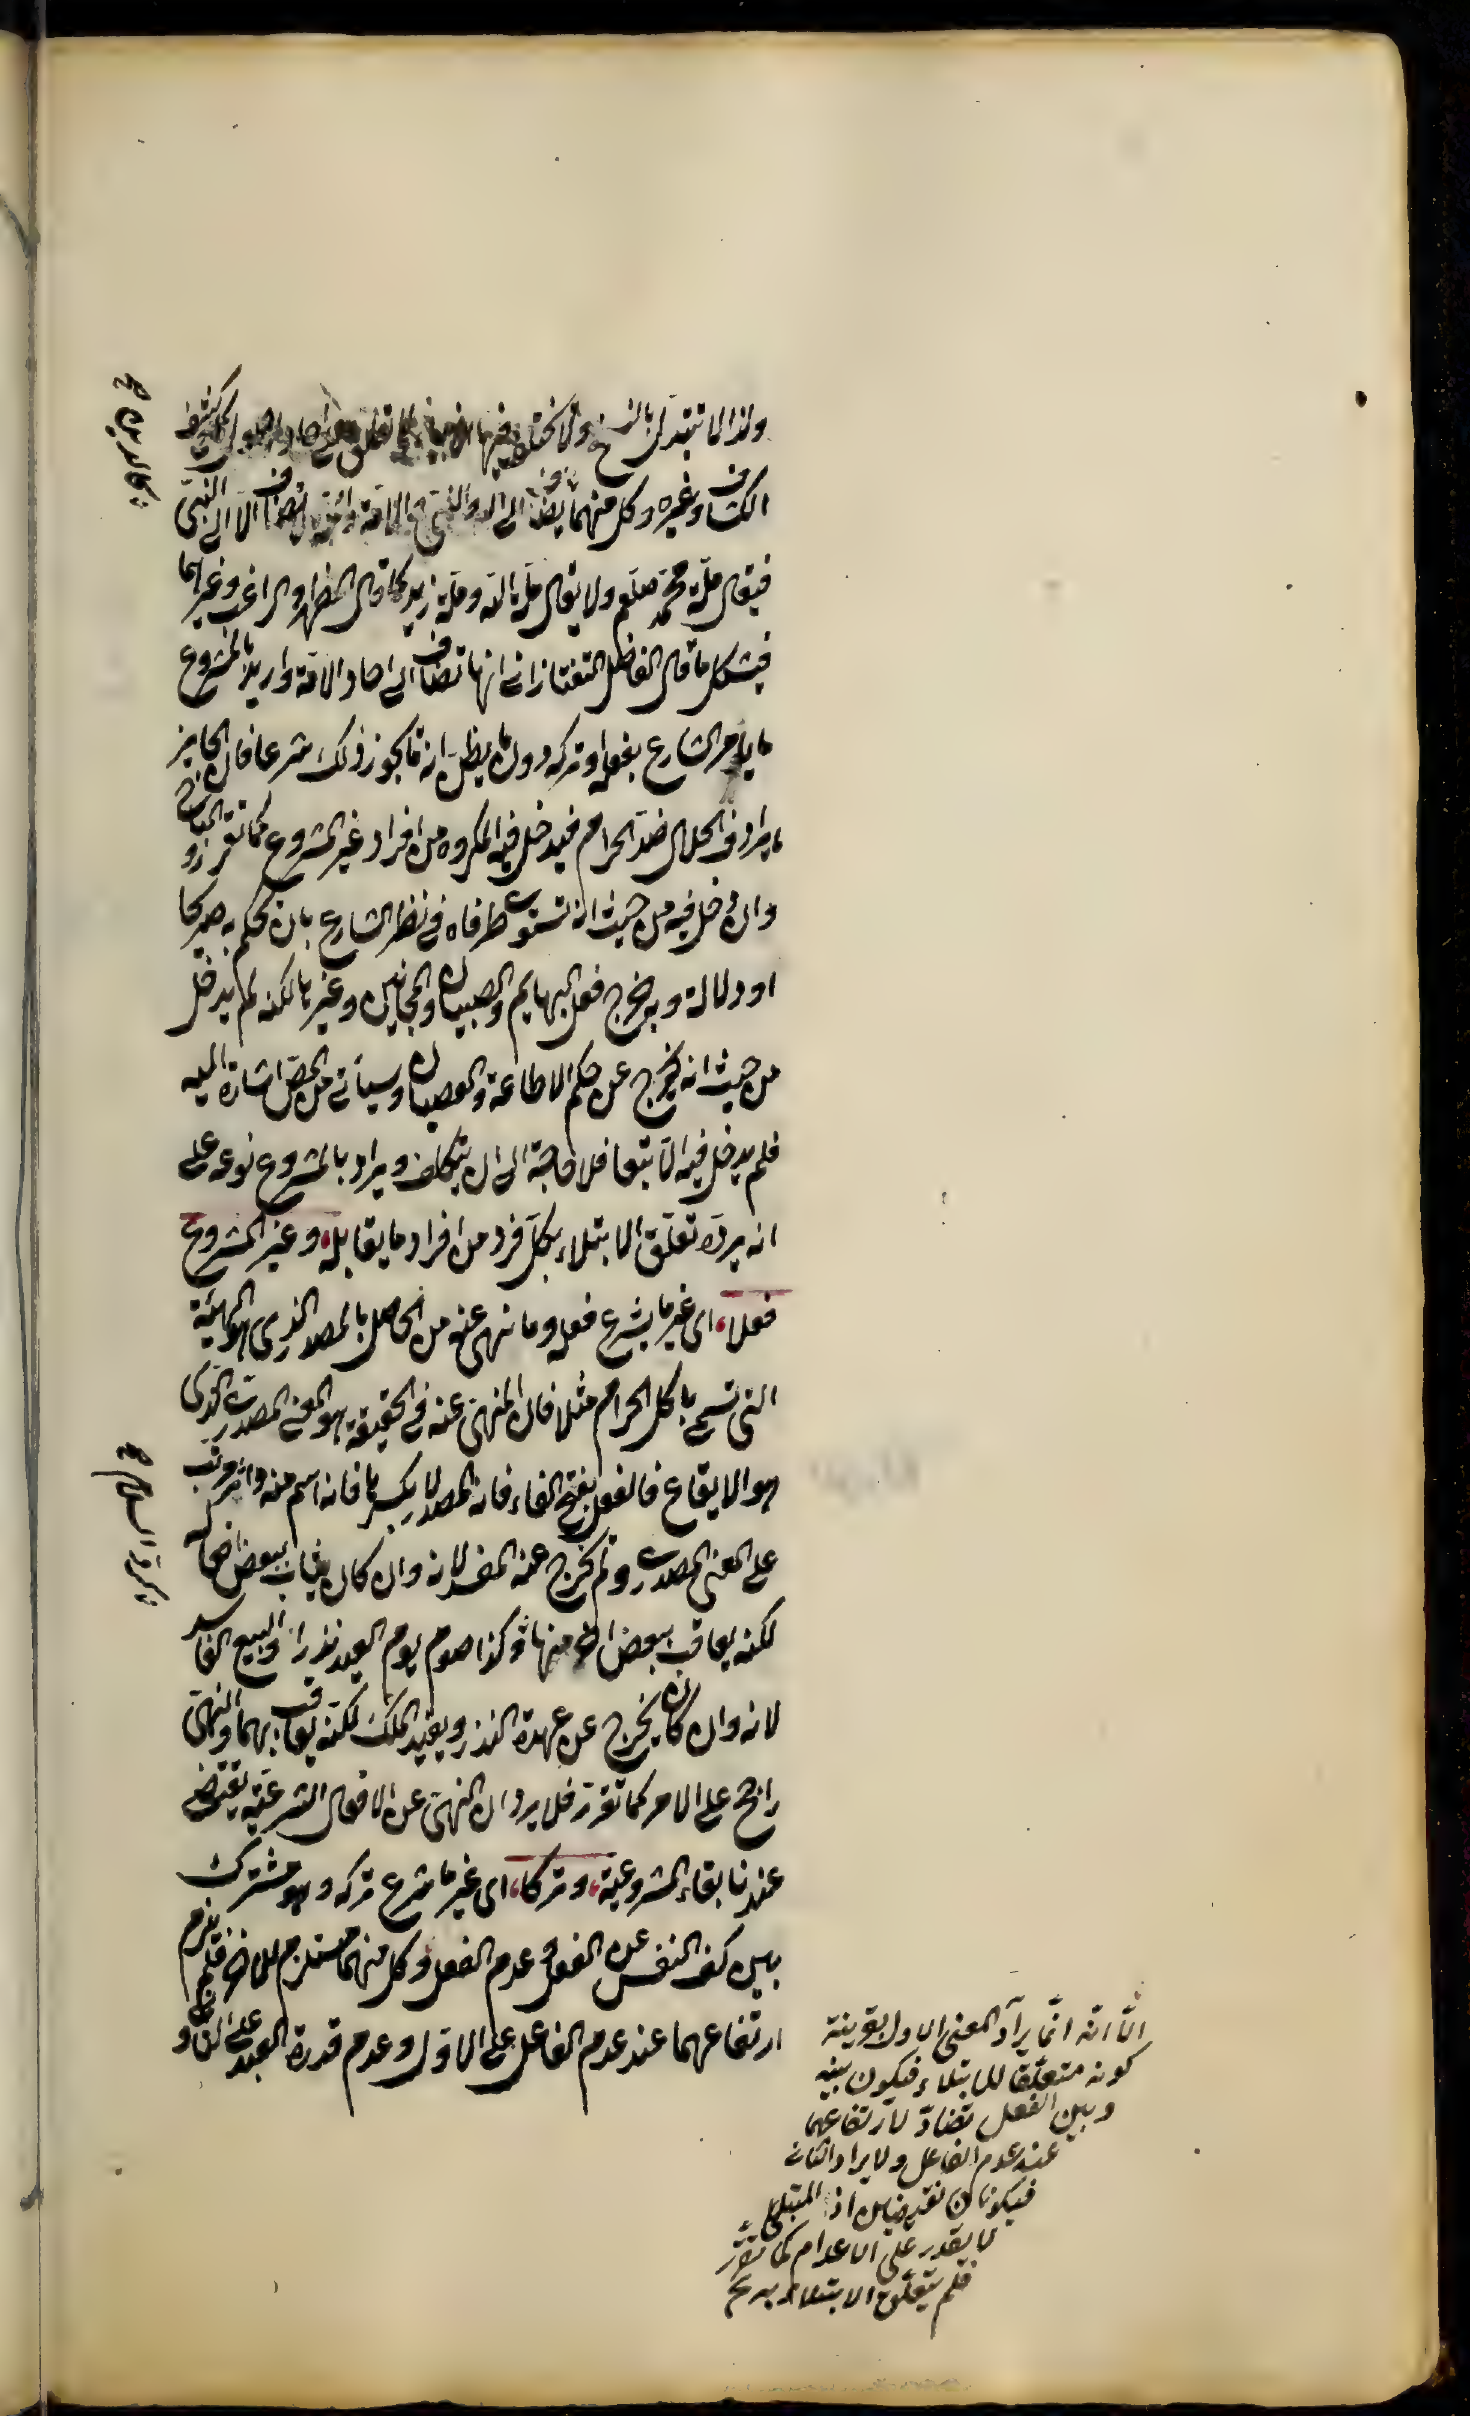 ولذا لا تتبدل بالنسخ ولا يختلف فيها الانبياء ولا تطلق على آحاد الاصول كما في
الكشاف وغيره وكل منهما يضاف الى الله والنبي والامة والملة لا تضاف الا الى النبي
فيقال ملة محمد صلعم ولا يقال ملة الله وملة زيد كما قال المظهر والراغب وغيرهما
فيشكل ما قال الفاضل التفتازاني انها تضاف الى آحاد الامة واريد بالمشروع
ما يأمر الشارع بفعله او تركه دون ما يظن انه ما يجوز ذلك شرعا فان الجائز
يرادف الحلال ضد الحرام فيدخل فيه المكروه من افراد غير المشروع كما تقرر والمباح
وان دخل فيه من حيث انه تستوي طرفاه في نظر الشارع بان يحكم به صريحا
او دلالة وبه يخرج فعل البهايم والصبيان والمجانين وغيرها لكنه لم يدخل
من حيث انه يخرج عن حكم الاطاعة والعصيان وسيأتي من المص اشارة اليه
فلم يدخل فيه الا تبعا فلا حاجة الى ان يتكلف ويراد بالمشروع نوعه على
انه يرده تعلق الابتلاء بكل فرد من افراد ما يقابله وغير المشروع
فعلا، اي غير ما يشرع فعله وما نهي عنه من الحاصل بالمصدر الذي هو الهيئة
التي تسمى باكل الحرام مثلا فان المنهي عنه في الحقيقة هو المعنى المصدري الذي
هو الايقاع فالفعل بفتح الفاء فانه المصدر لا بكسرها فانه اسم منه واثر مرتب
على المعنى المصدري ولم يخرج عنه المفسد لانه وان كان يثاب ببعض
لكنه يعاقب ببعض منها وكذا صوم يوم العيد نذرا والبيع الفاسد
لانه وان كان يخرج عن عهدة النذر ويفيد الملك لكنه يعاقب بهما والنهي
راجح على الامر كما تقرر فلا يرد ان النهي عن الافعال الشرعية يقتضي
عندنا بقاء المشروعية، وتركا، اي غير ما شرع تركه وهو مشترك
بين كف النفس عن الفعل وعدم الفعل وكل منهما مستلزم للآخر فلم يلزم
ارتفاعهما عند عدم الفاعل على الاول وعدم قدرة العبد على الثاني و
الا انه انما يراد المعنى الاول بقرينة
كونه متعلقا للابتلاء فيكون بينه
وبين الفعل تضاد لارتفاعهما
عند عدم الفاعل ولا يراد الثاني
فيكونان نقيضين اذ المبتلى
لا يقدر على الاعدام كما تقرر
فلم يتعلق الابتلاء به